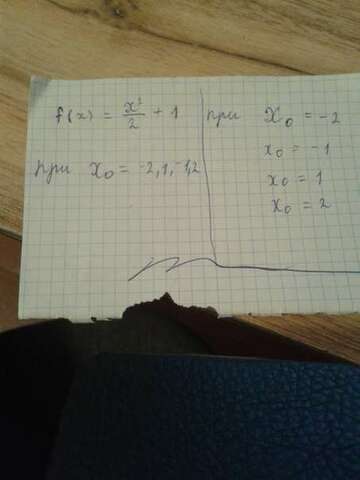 f(x) = x²/2 + 1
при x₀ = -2, 1, -1, 2
при x₀ = -2
x₀ = -1
x₀ = 1
x₀ = 2